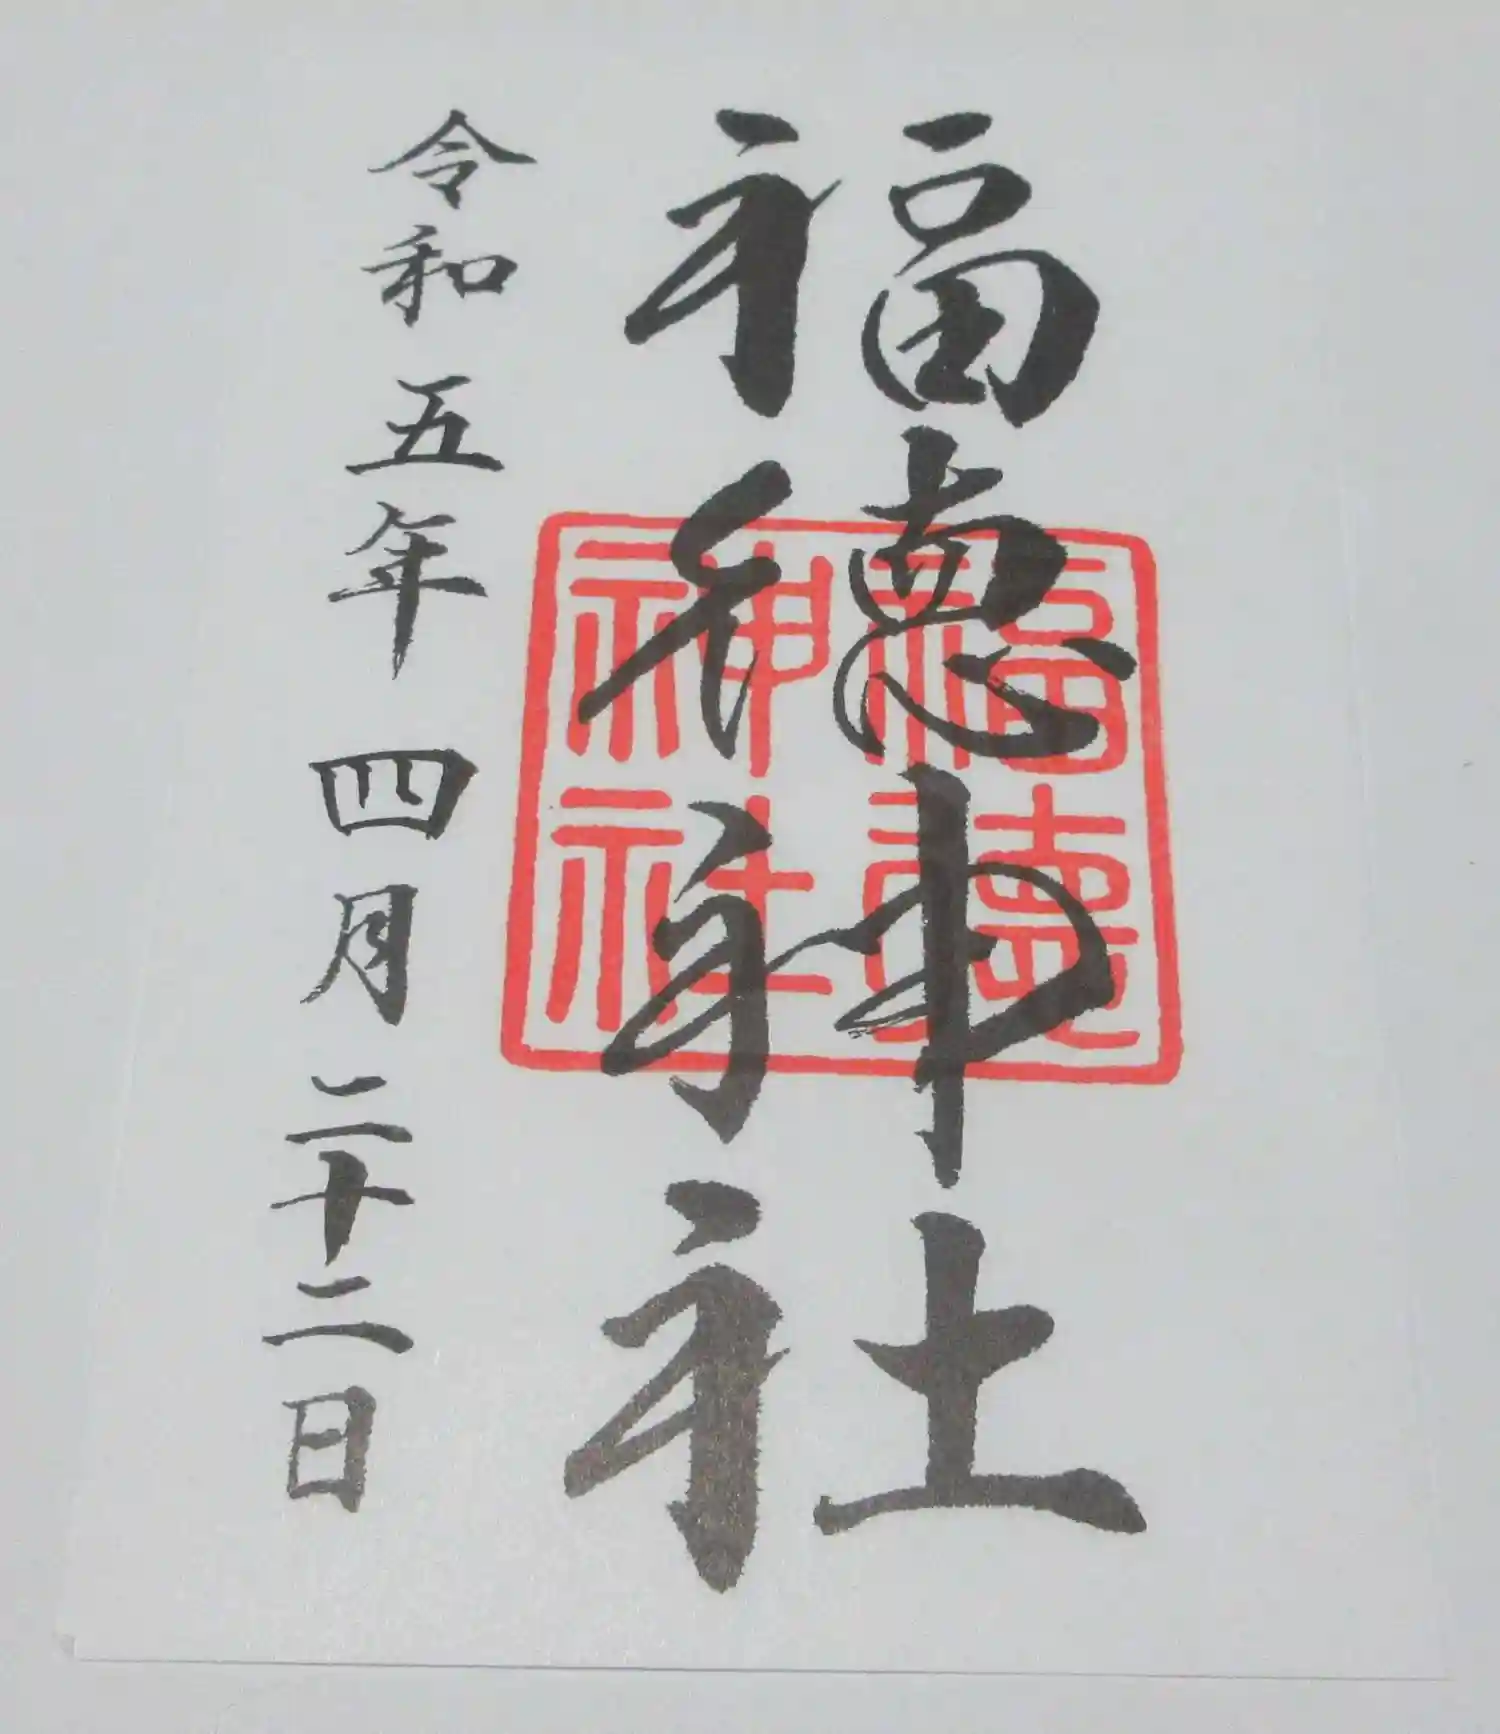 福徳神社
令和五年四月二十二日
福徳
神社